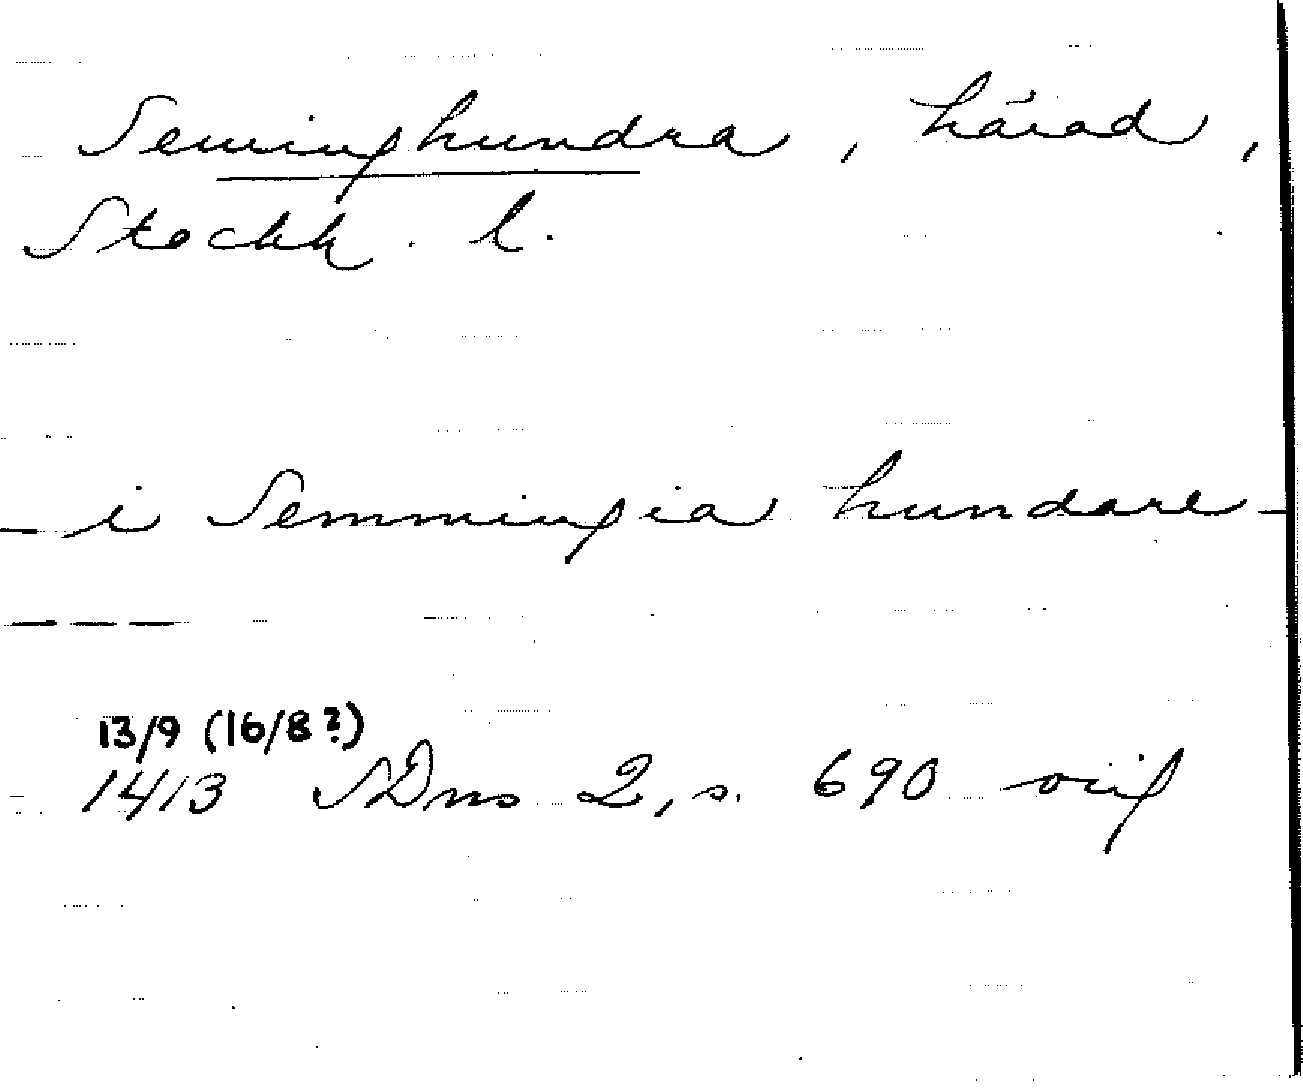 Seminghundra, härad,
Stockh. l.
— i Semmingia hundare —
— — —
13/9 (16/8?)
1413 SDns 2, s. 690 orig